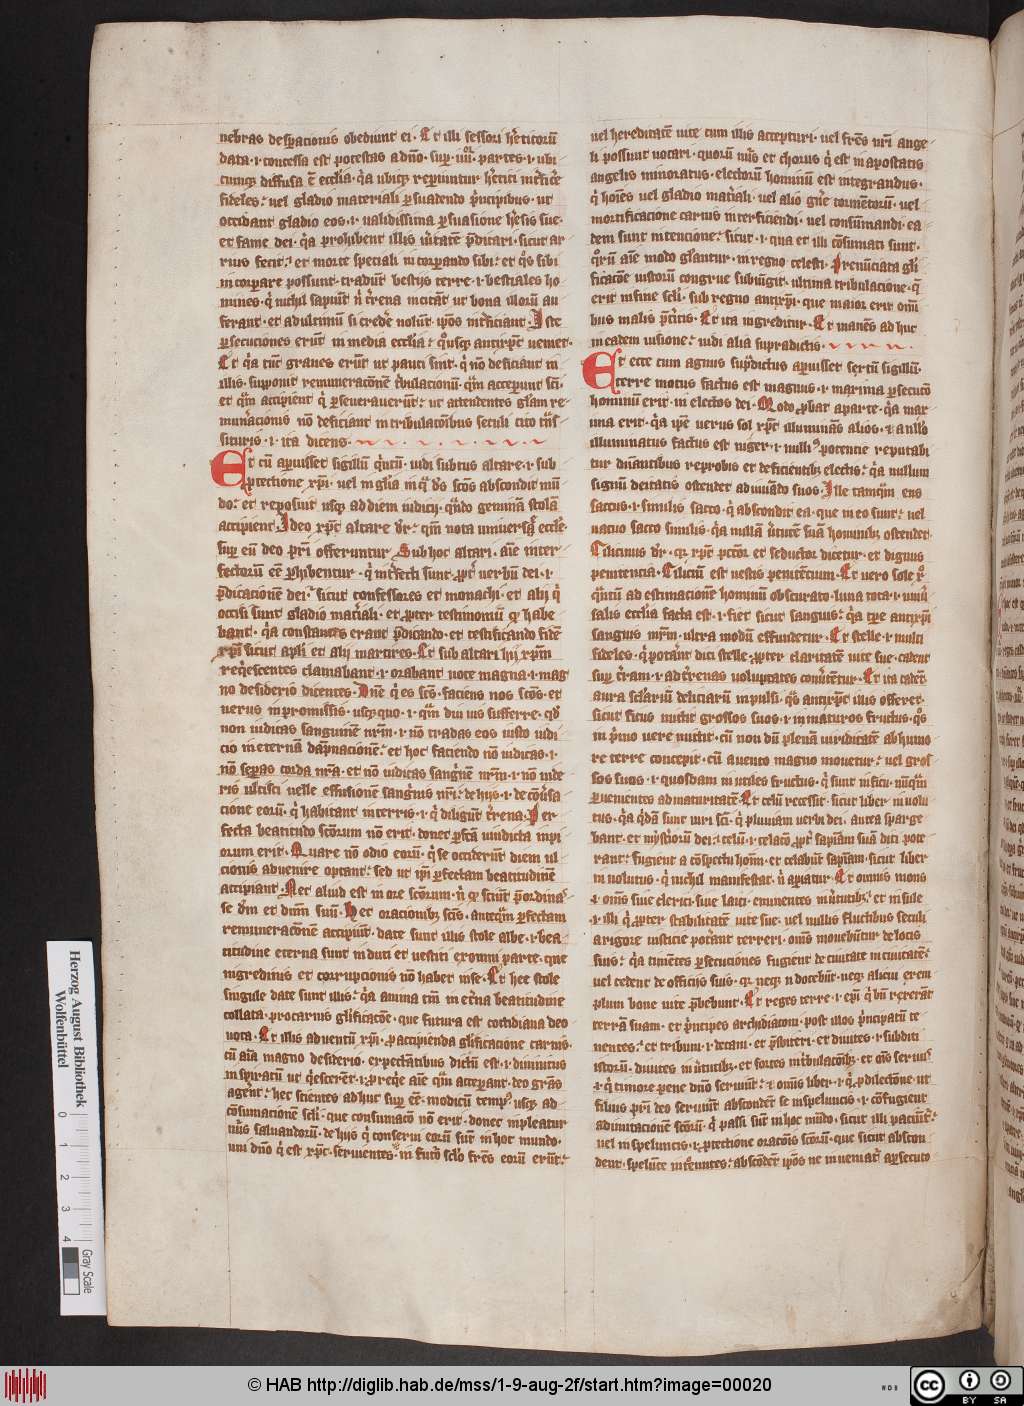 nebras desꝑacionis obediunt ei · Et illi sessori h̓eticorū
data · i · concessa est potestas a dn̄o · suꝑ · iiii · partes · t · ubi
cumqꝫ diffusa ē eccl̓ia · q̓a ubiqꝫ reꝑiuntur h̓etici int̓fic̓e
fideles · uel gladio materiali ꝑ suadendo p̓ncipibus · ut
occidant gladio eos · i · ualidissima ꝑsuasione h̓esis sue ·
et fame dei · q̓a prohibent illis u̓itatē p̄dicari · sicut ar
rius fecit · et morte speciali incorporando sibi · et q̓s sibi
incorpare possunt · tradūt bestijs terre · i · bestiales ho
mines · q̓ nichil sapiūt n̄ t̓rena incitāt ut bona illorū au
ferant · et ad ultimū si cred̓e nolūt ip̄os int̓ficiant · Iste
ꝑsecuciones erūt in media eccl̓ia · q̓usqꝫ antixp̄c uemet ·
Et q̓a tūc graues erūt ut pauci sint · q̓ nō deficiant in
illis · suponit remuneracōnē t̓bulacionū · q̄m acceperunt sc̄i ·
et q̄m accipient q̓ ꝑseuerauerūt · ut attendentes gl̓am re
mun̓acionis nō deficiant in tribulacōibus seculi cito t̄ns
situris · i · ita dicens ·
Et cū apuisset sigillū q̓ntū · uidi subtus altare · i · sub
ꝓtectione xp̄i · uel in gl̓ia in q̓ d̄s sc̄os abscondit mū
do · et reposuit usqꝫ ad diem iudicij · q̄ndo geminā stolā
accipient · Ideo xp̄c altare dr̄ · q̄m uota uniuersa eccl̓e
suꝑ eū deo pr̄i offeruntur · Sub hoc altari · aīe inter
fectorū eē ꝑhibentur · q̓ int̓fecti sunt ꝓpt̓ uerbū dei · i ·
p̄dicacionē dei · sicut confessores et monachi · et alij q̓
occisi sunt gladio mat̓iali · et propter testimoniū q̓ habe
bant · q̓a constantes erant p̄dicando · et testificando fidē
xp̄i sicut apl̓i et alij martires · Et sub altari hij xp̄m
req̓escentes clamabant · i · orabant uoce magna · i · mag
no desiderio dicentes · Dn̄e q̓ es sc̄s · faciens nos sc̄os · et
uerus in promissis · usqꝫquo · i · q̄m diu uis sufferre · qd̓
non iudicas sanguinē nr̄m · i · nō tradas eos iusto iudi
cio in eternā dāpnacionē · et hoc faciendo nō iudicas · i ·
nō seperas corda nr̄a · et nō iudicas sang̓nē nr̄m · i · nō uide
ris ulcisci uelle effusionē sang̓nis nr̄i · de hijs · i · de cōu̓sa
cione eorū · q̓ habitant in terris · i · q̓ diligūt t̓rena · Per
fecta beatitudo sc̄orum nō erit · donec ꝑfc̄ā uindicta impi
orum erit · Quare nō odio eorū · q̓ se occiderūt diem ul
cionis aduenire optant · sed ut ip̄i ꝑfectam beatitudinē
accipiant · Nec aliud est in ore sc̄orum · n̄ q̓ sciūt p̄ordina
se dm̄ et diuīn suū · Hec oracionibꝫ sc̄is · anteq̄m ꝑfectam
remuneracōnē accipiūt · date sunt illis stole albe · i · bea
titudine eterna sunt induti et uestiti ex omni parte · que
ingredinis et corrupcionis nō haber inse · Et hee stole
singule date sunt illis · q̓a anima tm̄ in et̓na beatitudine
collata · pro carnis gl̓ificacōe · que futura est cottidiana deo
uota · Et illis aduentū xp̄i · ꝓ accipienda gl̓ificatione carnis ·
cū aīa magno desiderio · expectātibus dictū est · i · diuinitus
inspiratū ut q̓escerēt · i · preq̓e aīe q̄m acceꝑant · deo gr̄as
agēnt · hec scientes adhuc suꝑ eē · modicū tempꝰ usqꝫ ad
cōsumacionē scl̓i · que consumacō nō erit · donec impleatur
nūs saluandorū · de hijs q̓ conserui eorū sūt in hoc mundo ·
uni dn̄o q̓ est xp̄c · seruientes · in futo̓ scl̓o fr̄es eorū erūt ·
uel hereditatē uite cum illis accepturi · uel fr̄es nr̄i ange
li possunt uocari · quorū nūs et chorus q̓ est in apostatis
angelis minoratus · electorū hominū est integrandus ·
q̓ hoīes uel gladio mat̓iali · uel alio gn̄e tormētorū · uel
mortificacione carnis interficiendi · uel consūmandi ea
dem sunt intencione · sicut · i · qua et illi cōsumati sunt ·
q̓rū aīe modo gl̓antur · in regno celesti · Prenūciata gl̓i
ficacōe iustorū congrue subiūgit · ultima tribulacione · q̓
erit in fine scl̓i · sub regno antixp̄i · que maior erit om̄i
bus malis p̄t̓itis · Et ita ingreditur · Et manēs adhuc
in eadem uisione · uidi alia supradictis ·
Et ecce cum agnus sup̄dictus apuisset sextū sigillū ·
terre motus factus est magnus · i · maxima ꝑsecucō
hominū erit · in electos dei · Modo ꝓbat aparte · q̓a max
ima erit · q̓a ip̄e uerus sol xp̄c illuminās alios · et a nllō
illuminatus factus est niger · i · nulliꝰ potencie reputabi
tur dn̄antibus reprobis et deficientibꝫ electis · q̓a nullum
signū deitatis ostendet ad iuuādo suos · Ille tamq̄m ens
saccus · i · similis sacco · q̓ abscondit ea · que in eo sunt · uel
uacuo sacco similis · q̓a nullā u̓tutē suā hominibꝫ ostendet
Cilicinus dr̄ · q̓ xp̄c pcc̄or et seductor dicetur · et dignus
penitencia · Ciliciū est uestis penitētium · Et uero sole xp̄o
q̓ntū ad estimacionē hominū obscurato · luna tota · i · uniu̓
salis eccl̓ia facta est · i · fiet sicut sanguis · q̓a tp̄e antixp̄i
sanguis mr̄m · ultra modū effundetur · Et stelle · i · multi
fideles · q̓ potānt dici stelle ꝓpter claritatē uite sue · cadent
suꝑ t̓ram · i · ad t̓renas uoluptates conu̓tētur · Et ita cadēt
aura scl̓ariū deliciarū inpulsi · q̓s antixp̄c illis offeret ·
sicut ficus mittit grossos suos · i · in maturos fructus · q̓s
in p̓mo uere mittit · cū non dū plenā uiriditatē ab humo
re terre concepit · cū a uento magno mouetur · uel gros
sos suos · i · quosdam in utiles fructus · q̓ sunt in ficu · nūq̄m
ꝑuenientes ad maturitatē · Et celū recessit · sicut liber inuolu
tus · q̓a q̓dā sunt uiri sc̄i · q̓ pluuiam uerbi dei · antea sparge
bant · et myst̓iorū dei · celū · i · celacō ꝓpt̓ sapiam suā dici pote
rant · fugient a cōspectu hoīm · et celabūt sapiam · sicut liber
inuolutus · q̓ nichil manifestat · n̄ apiatur · Et omnis mons
i · om̄s siue clerici · siue laici · eminentes in u̓tutibꝫ · et insule
· i · illi q̓ ꝓpter stabilitatē uite sue · uel nullis fluctibus seculi
a rigore iusticie potānt terreri · om̄s mouebūtur de locis
suis · q̓a timētes ꝑsecuciones fugient de ciuitate in ciuitatē ·
uel cedent de officijs suis · q̓ neqꝫ n̄ docebūt · neqꝫ alicui exem
plum bone uite p̄bebunt · Et reges terre · i · epī · q̓ bn̄ rexerāt
terrā suam · et p̓ncipes archidiaconi · post illos p̓ncipatū te
nentes · et tribuni · i · decani · et p̄sbiteri · et diuites · i · subditi
istorū · diuites in u̓tutibꝫ · et fortes in t̓bulacōibꝫ · et oīs seruus
i · q̓ timore pene dn̄o seruiūt · et omnis liber · i · q̓ ꝓ dilectōne · ut
filius pr̄i deo seruiūt abscondēt se in speluncis · i · cōfugient
ad imitacionē sc̄orū · q̓ passi sūt in hoc mūdo · sicut illi paciūt̓ ·
uel in speluncis · i · ꝓtectione oracōis sc̄orū · que sicut abscon
dent · spelūce intrātes · abscōdēt ip̄os ne inueniat̓ a ꝑsecuto
Herzog August Bibliothek
Wolfenbüttel
0 1 2 3 4
Gray Scale
© HAB http://diglib.hab.de/mss/1-9-aug-2f/start.htm?image=00020
WDB
cc BY SA